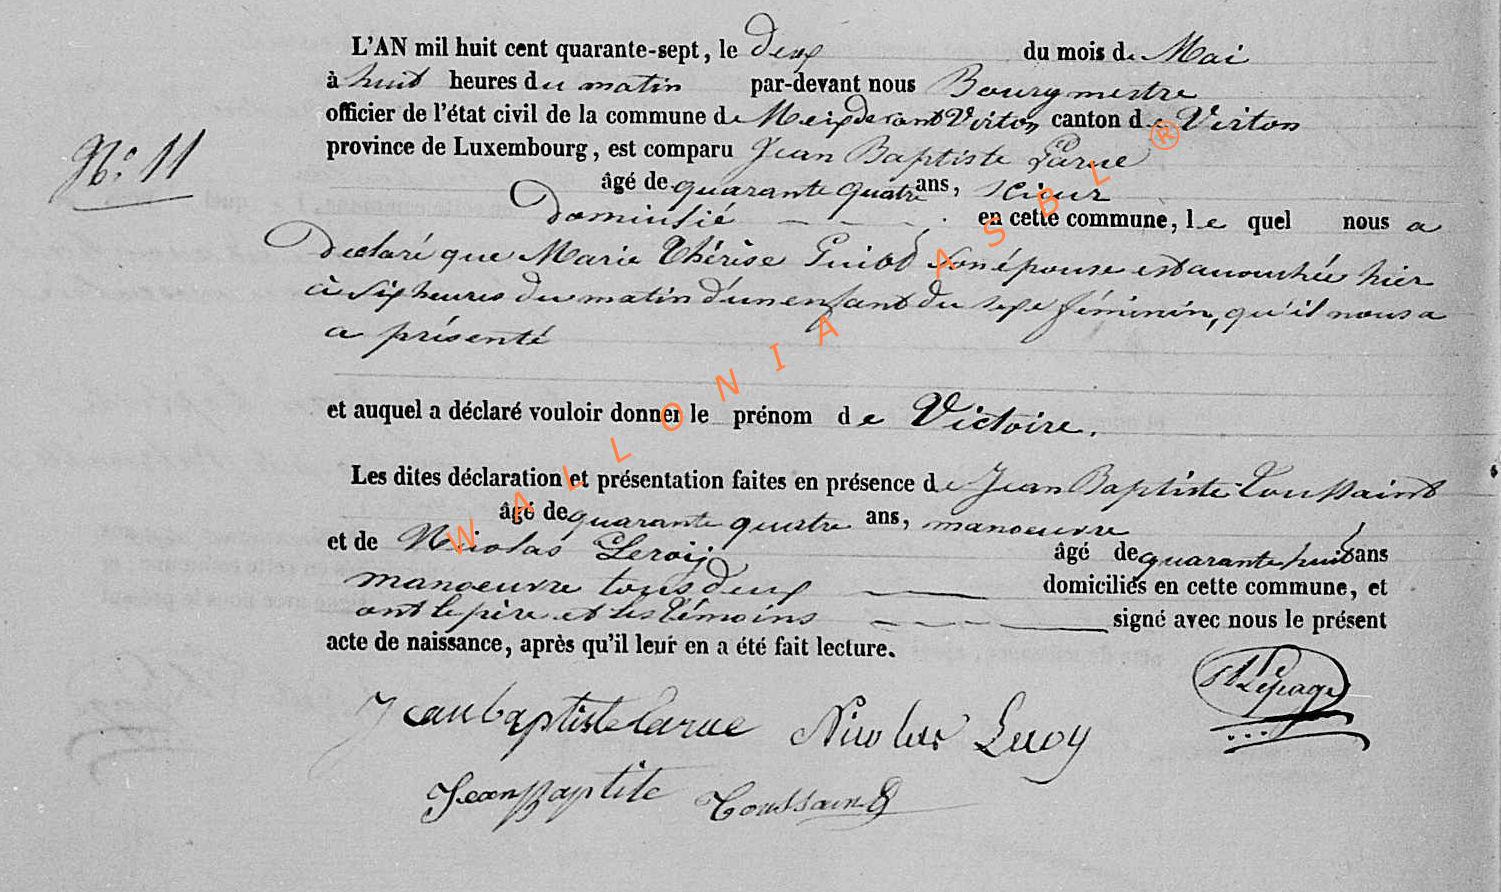 L'AN mil huit cent quarante-sept, le deux du mois de Mai
à huit heures du matin par-devant nous Bourgmestre
officier de l'état civil de la commune de Meixdevant Virton canton de Virton
N.° 11
province de Luxembourg, est comparu Jean Baptiste Larue
âgé de quarante quatre ans, scieur
domicilié en cette commune, lequel nous a
déclaré que Marie Thérèse son épouse est accouchée hier
à six heures du matin d'un enfant du sexe féminin, qu'il nous a
a présenté
et auquel a déclaré vouloir donner le prénom de Victoire.
Les dites déclaration et présentation faites en présence de Jean Baptiste Toussaint
âgé de quarante quatre ans, manoeuvre
et de Nicolas Leroy âgé de quarante huit ans
manoeuvre tous deux domiciliés en cette commune, et
ont le père et les témoins signé avec nous le présent
acte de naissance, après qu'il leur en a été fait lecture.
Lepage
Jean baptiste larue Nicolas Leroy
Jean Baptite Toussaint
WALLONIA ASBL ®